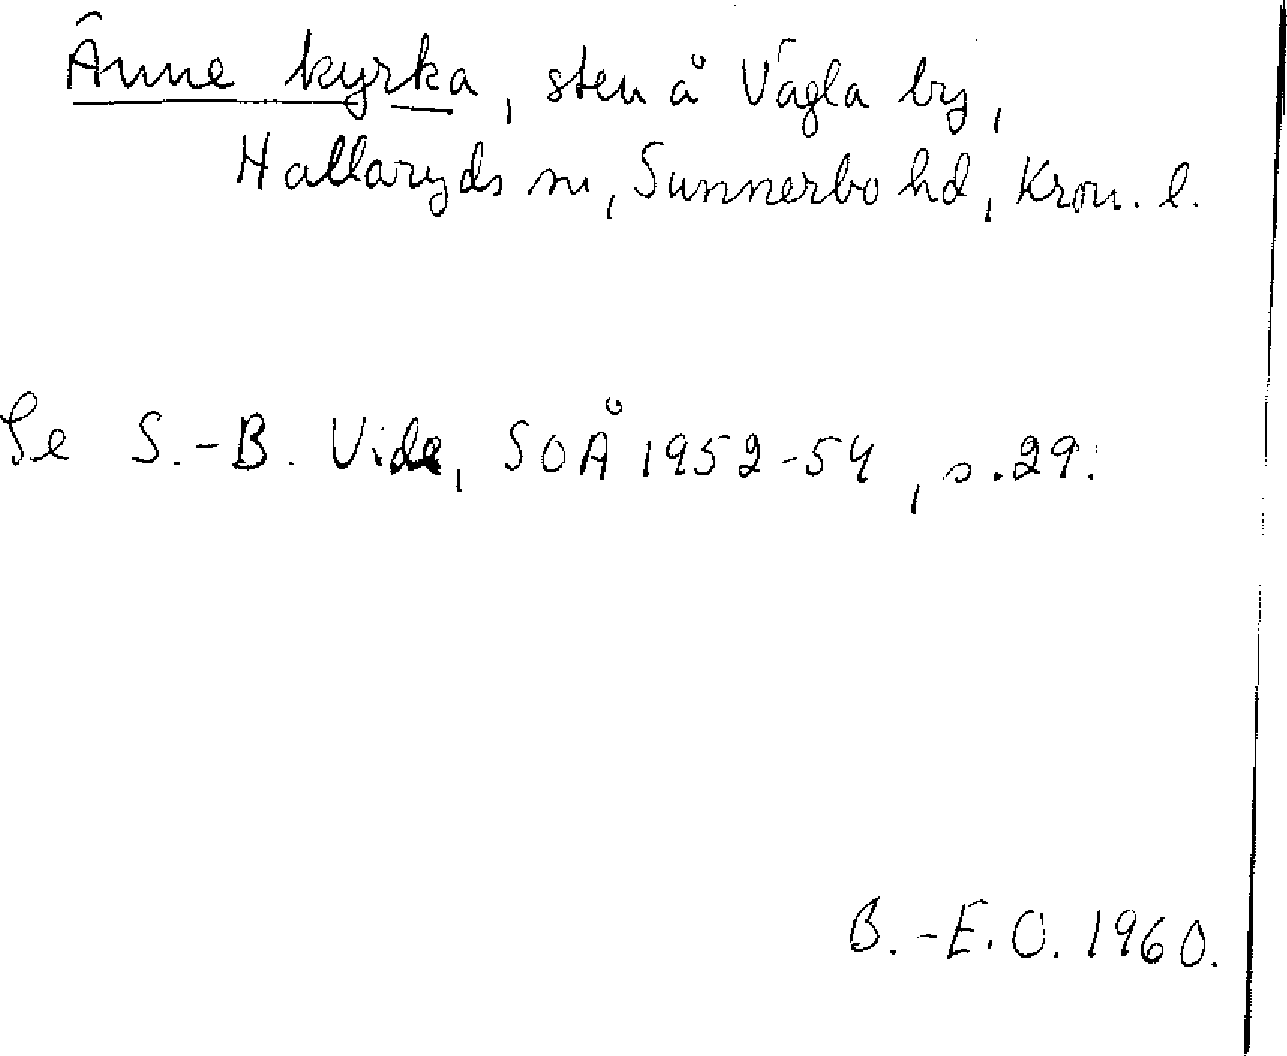 Änne kyrka, sten å Vägla by,
Hallaryds sn, Sunnerbo hd, Kron. l.
Se S.-B. Vide, SOÅ 1952-54, s. 29.
B.-E.O. 1960.